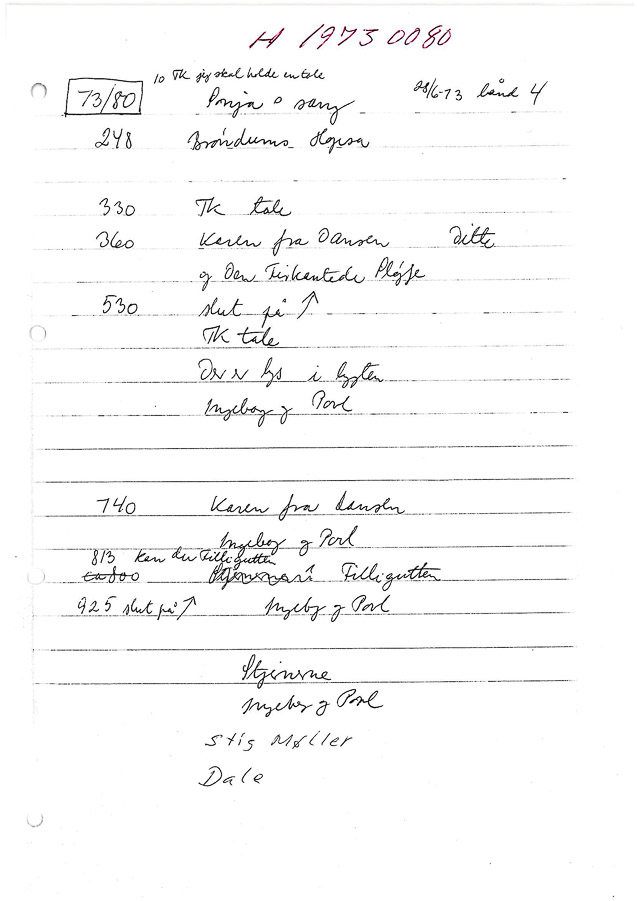 H 1973 0080
10 TK jeg skal holde en tale
73/80 Ponja o sang 28/6-73 bånd 4
248 Brøndums Hopsa
330 TK tale
360 Karen fra Dansen Ditte
og Den Firkantede Pløjje
530 slut på ↑
TK tale
Der er lys i lygten
Ingeborg og Poul
740 Karen fra dansen
Ingeborg og Poul
813 Kan du Tilligutten
ca 800 Stjernerne i Tilligutten
925 slut på ↑ Ingeborg og Poul
Stjernerne
Ingeborg og Poul
Stig Møller
Dale